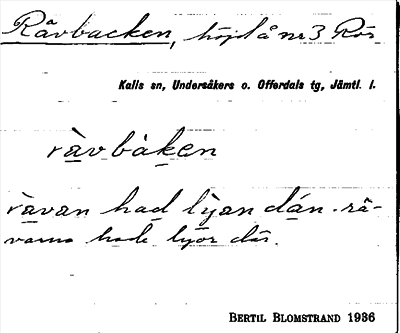 Rävbacken, höjd å nr 3 Rös
Kalls sn, Undersåkers o. Offerdals tg, Jämtl. l.
ràvbàken
ràvan had lỳan dán. rä-
varna hade lyor där.
BERTIL BLOMSTRAND 1936